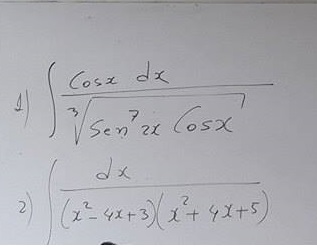 1) ∫ Cosx dx / ∛(Sen⁷2x Cosx)
2) ∫ dx / (x²-4x+3)(x²+4x+5)